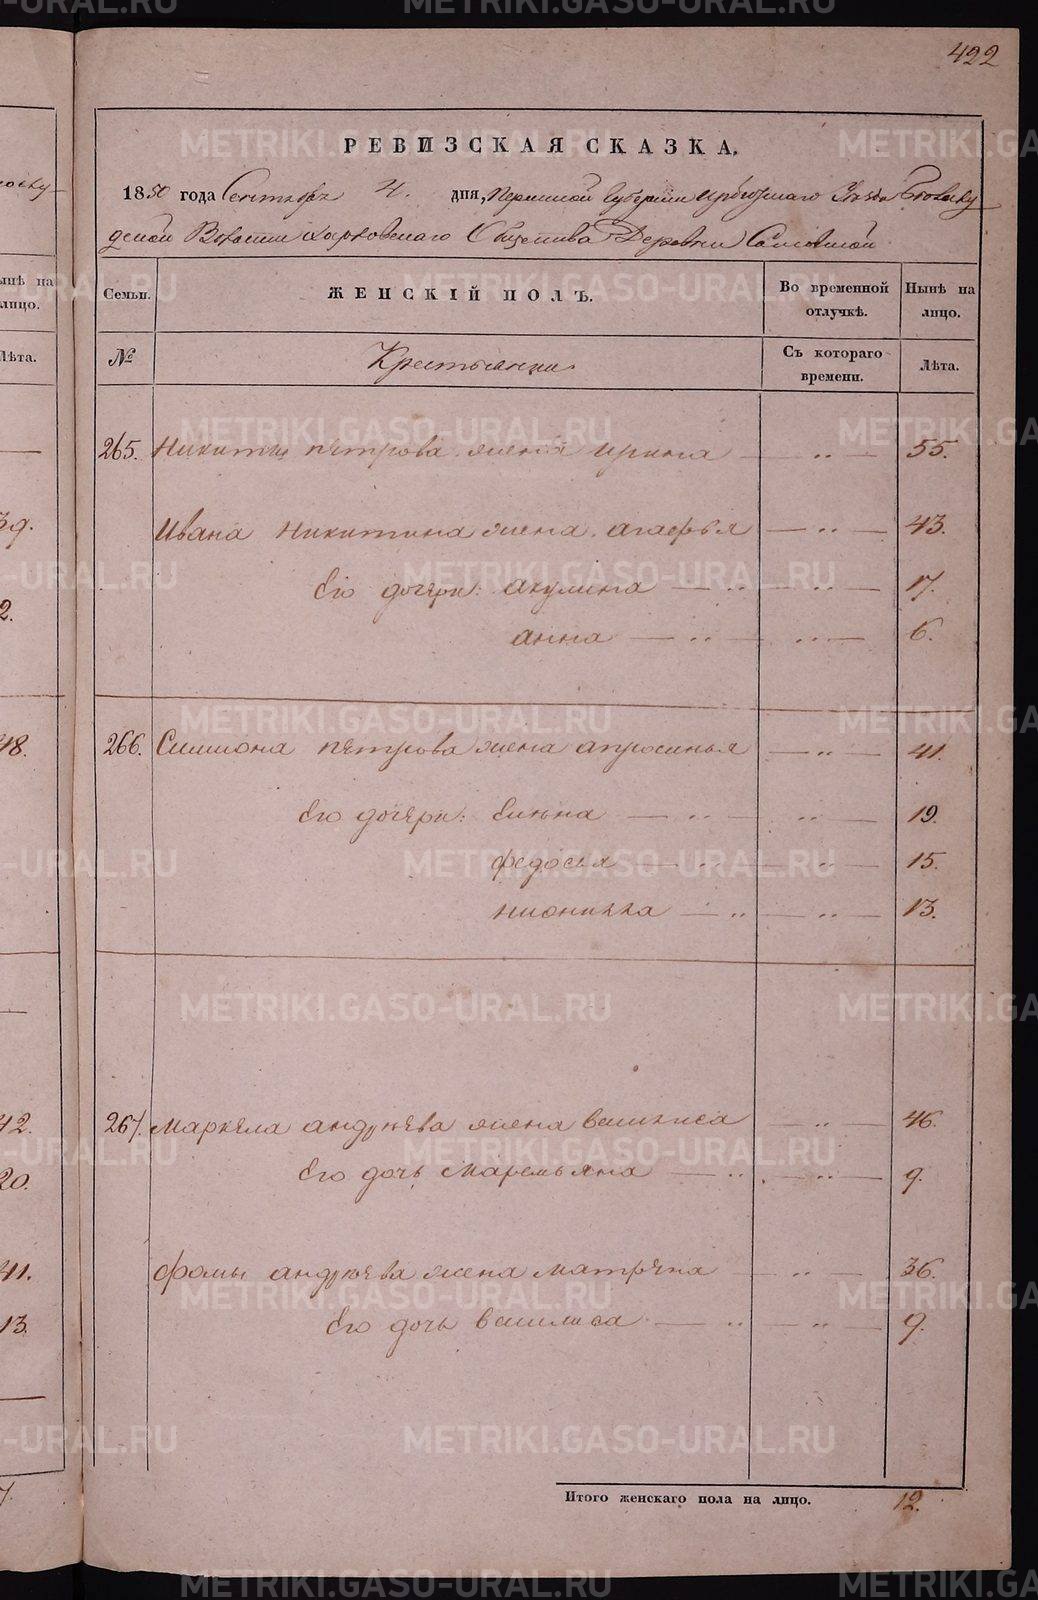 422
РЕВИЗСКАЯ СКАЗКА.
1850 года Сентября 4. дня, Пермской Губернии Ирбитскаго Уезда
Волости Общества Деревни
Семьи. ЖЕНСКІЙ ПОЛЪ. Во временной отлучкѣ. Нынѣ на лицо.
№ Крестьянки Съ котораго времени. Лѣта.
265. Никиты петрова жена ирина — „ — 55.
Ивана Никитина жена агафья — „ — 43.
Его дочери: акулина — „ — „ — 17.
анна — „ — „ — 6.
266. Симиона петрова жена апросинья — „ — 41.
Его дочери: Елена — „ — „ — 19.
федосья — „ — „ — 15.
— „ — „ — 13.
267. Маркела андреева жена василиса — „ — 46.
Его дочь Маремьяна — „ — „ — 9.
фомы андреева жена матрена — „ — 36.
Его дочь василиса — „ — „ — 9.
Итого женскаго пола на лицо. 12.
ынѣ на
лицо.
Лѣта.
39.
2.
48.
42.
20.
41.
13.
METRIKI.GASO-URAL.RU